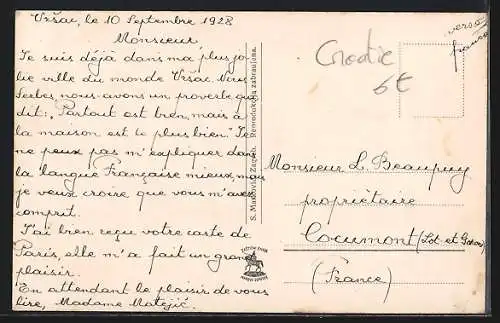 Vršac, le 10 Septembre 1928
Monsieur
Je suis déjà dans ma plus jo-
lie ville du monde Vršac. Nous
Serbes nous avons un proverbe qui
dit: „Partout est bien, mais à
la maison est le plus bien." Je
ne peux pas m'expliquer dans
la langue Française mieux, mais
je veux croire que vous m'avez
comprit.
J'ai bien reçu votre carte de
Paris, elle m'a fait un grand
plaisir.
En attendant le plaisir de vous
lire, Madame Matejić.
S. Marković, Zagreb. Reprodukcija zabranjena.
Croatie
6€
verso
france
Monsieur L. Beaupuy
propriétaire
Cocumont (Lot et Garon)
(France)